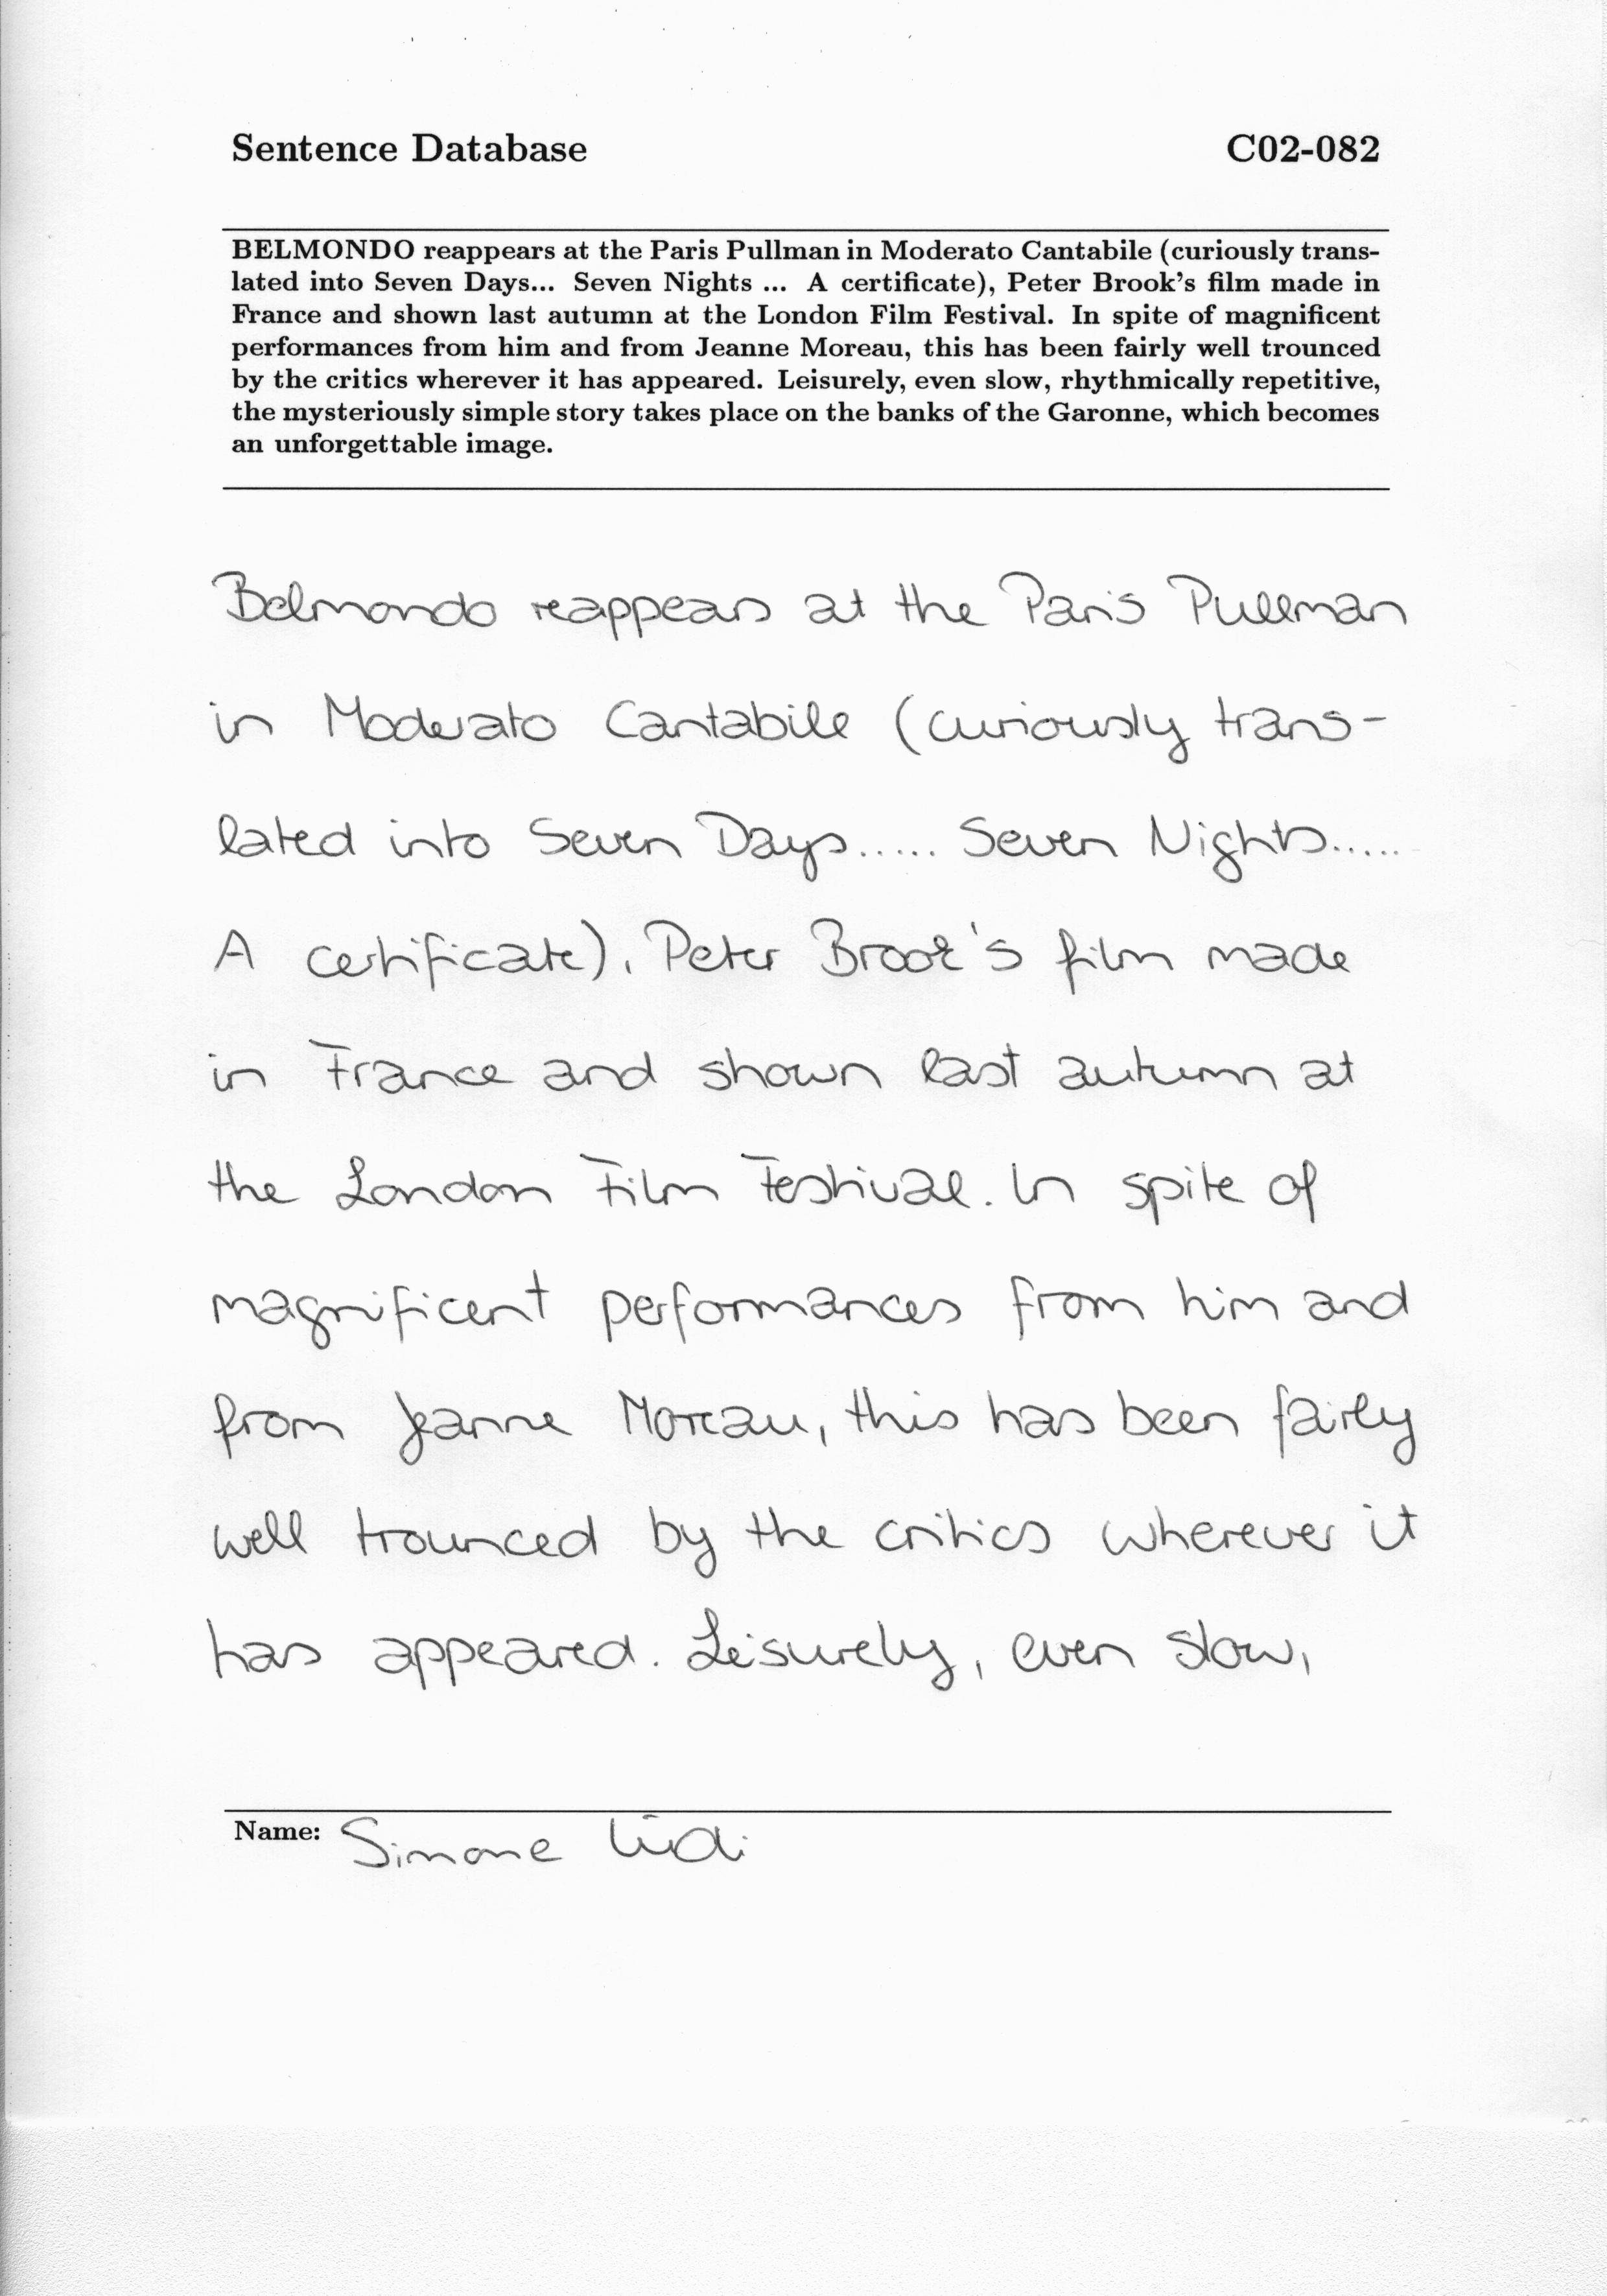 Sentence Database C02-082
BELMONDO reappears at the Paris Pullman in Moderato Cantabile (curiously trans-
lated into Seven Days... Seven Nights ... A certificate), Peter Brook's film made in
France and shown last autumn at the London Film Festival. In spite of magnificent
performances from him and from Jeanne Moreau, this has been fairly well trounced
by the critics wherever it has appeared. Leisurely, even slow, rhythmically repetitive,
the mysteriously simple story takes place on the banks of the Garonne, which becomes
an unforgettable image.
Belmondo reappears at the Paris Pullman
in Moderato Cantabile (curiously trans-
lated into Seven Days..... Seven Nights.....
A certificate), Peter Brook's film made
in France and shown last autumn at
the London Film Festival. In spite of
magnificent performances from him and
from Jeanne Moreau, this has been fairly
well trounced by the critics wherever it
has appeared. Leisurely, even slow,
Name: Simone